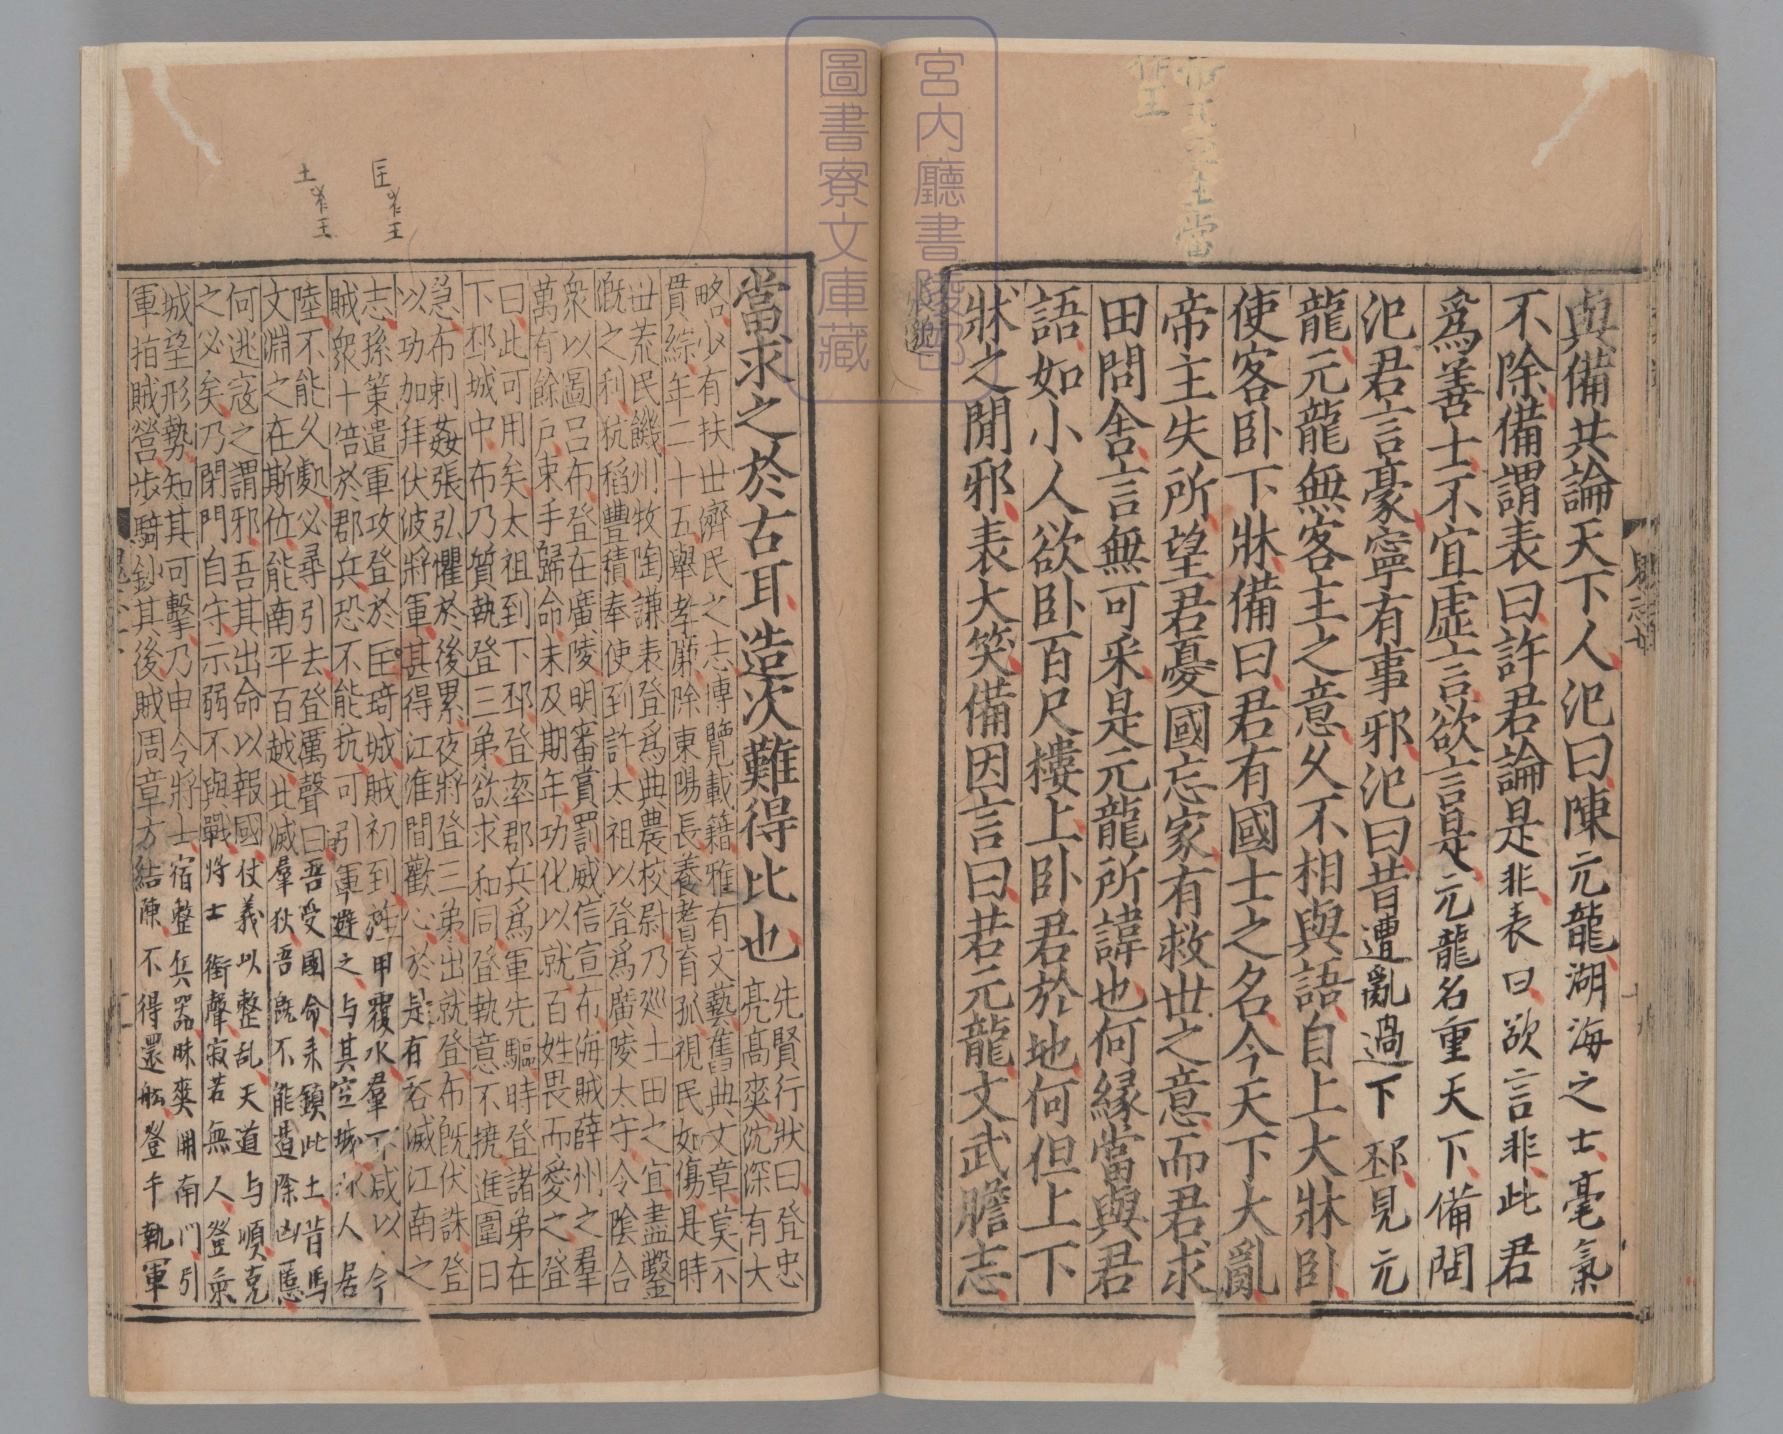 與備共論天下人汜曰陳元龍湖海之士毫氣
不除備謂表曰許君論是非表曰欲言非此君
爲善士不宜虛言欲言是元龍名重天下備問
汜君言豪寧有事邪汜曰昔遭亂過下邳見元
龍元龍無客主之意久不相與語自上大牀卧
使客卧下牀備曰君有國士之名今天下大亂
帝主失所望君憂國忘家有救世之意而君求
田問舍言無可采是元龍所諱也何緣當與君
語如小人欲卧百尺樓上卧君於地何但上下
牀之閒邪表大笑備因言曰若元龍文武膽志
宮内廳書陵部
圖書寮文庫藏
當求之於古耳造次難得比也
先賢行狀曰登忠
亮高爽沈深有大
略少有扶世濟民之志博覽載籍雅有文藝舊典文章莫不
貫綜年二十五舉孝廉除東陽長養耆育孤視民如傷是時
世荒民饑州牧陶謙表登爲典農校尉乃巡土田之宜盡鑿
溉之利秔稻豐積奉使到許太祖以登爲廣陵太守令陰合
衆以圖呂布登在廣陵明審賞罰威信宣布海賊薛州之羣
萬有餘戶束手歸命未及期年功化以就百姓畏而愛之登
曰此可用矣太祖到下邳登率郡兵爲軍先驅時登諸弟在
下邳城中布乃質執登三弟欲求和同登執意不撓進圍日
急布刺姦張弘懼於後累夜將登三弟出就登布既伏誅登
以功加拜伏波將軍甚得江淮間歡心於是有吞滅江南之
志孫策遣軍攻登於匡琦城賊初到旌甲覆水羣下咸以今
賊衆十倍於郡兵恐不能抗可引軍避之与其空城水人居
陸不能久處必尋引去登厲聲曰吾受國命來鎮此土昔馬
文淵之在斯位能南平百越北滅羣狄吾既不能遏除凶慝
何逃寇之謂邪吾其出命以報國仗義以整乱天道与順克
之必矣乃閉門自守示弱不與戰將士銜聲寂若無人登乘
城望形勢知其可擊乃申令將士宿整兵器昧爽開南門引
軍拍賊營步騎鈔其後賊周章方結陳不得還船登手執軍
匡作王
土作王